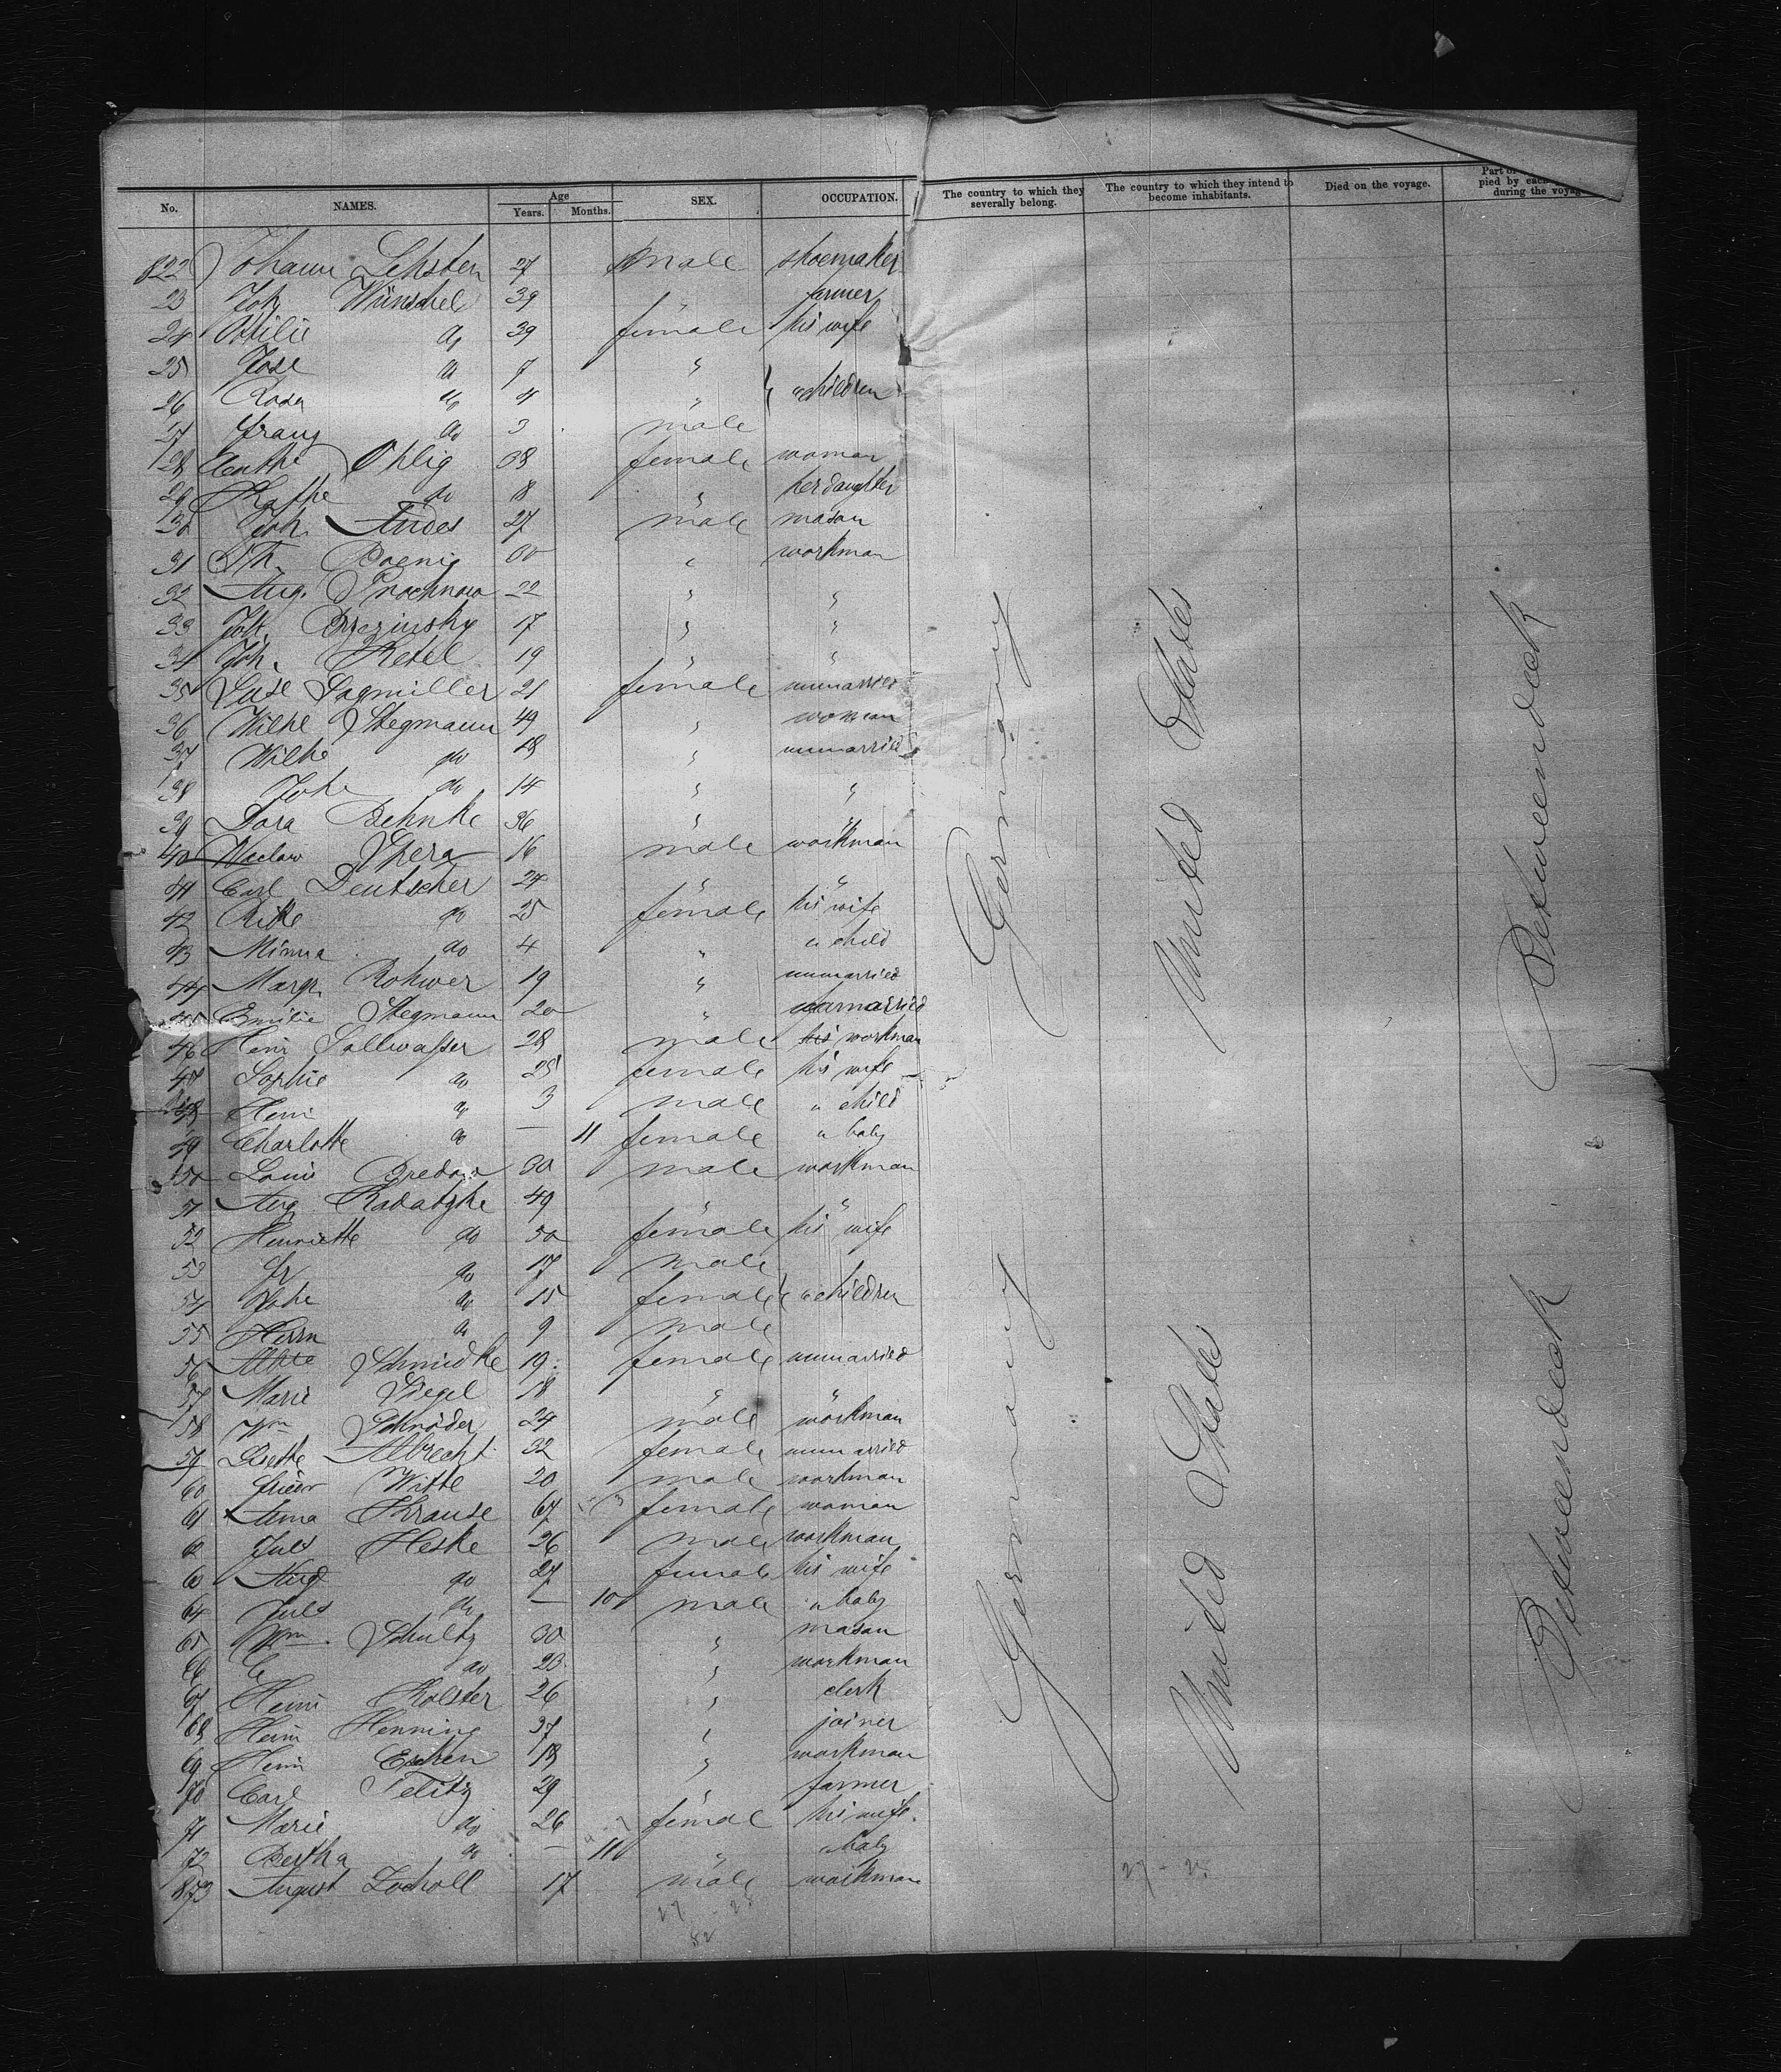 No. NAMES. Age Years. Months. SEX. OCCUPATION. The country to which they severally belong. The country to which they intend to become inhabitants. Died on the voyage. Part of pied by each during the voyage
822 Johann Lehsten 27 male shoemaker
23 Joh Wünschel 39 " farmer
24 Ottilie do 39 female his wife
25 Jose do 7 "
26 Rosa do 4 " " children
27 Franz do 3 male
28 Ohlig 38 female woman
29 Kathe do 18 " her daughter
30 Joh. Andes 27 male mason
31 Th. Boenig " workman
32 Aug. Prochnow 22 " "
33 Joh. Brzezinsky 17 " "
34 Joh. Ketel 19 " "
35 Luse Sagmiller 21 female unmarried
36 Wilhe Stegmann 49 " woman
37 Wilhe do 18 " unmarried
38 Johe do 14 " "
39 Dora Behnke 36 " "
40 Waclaw Spera 16 male workman
41 Carl Deutscher 24 " "
42 Rike do 25 female his wife
43 Minna do 4 " " child
44 Margr. Rohwer 19 " unmarried
45 Emilie Stegmann 20 " unmarried
46 Heinr Sallwasser 28 male his workman
47 Sophie do 25 female his wife
48 Heinr do 3 male " child
49 Charlotte do — 11 female " baby
50 Louis Bredow 30 male workman
51 Aug Radatzke 49 " "
52 Henriette do 50 female his wife
53 Fr do 17 male
54 Johe do 15 female " children
55 Herm do 9 male
56 Schmidtke 19 female unmarried
57 Marie Siegel 18 " "
58 Wm Schröder 24 male workman
59 Lisette Albrecht 32 female unmarried
60 Friedr Witte 20 male workman
61 Anna Krause 67 female woman
62 Juls Heske 26 male workman
63 Aug do 27 female his wife
64 Juls do — 10 male " baby
65 Wm Schultz 30 " mason
66 C do 23 " workman
67 Heinr Kolster 26 " clerk
68 Heinr Henning 37 " joiner
69 Heinr Eschen 18 " workman
70 Carl Telitz 29 " farmer
71 Marie do 26 female his wife
72 Bertha do — 11 " " baby
873 August Zocholl 17 male workman
Germany United States Betweendeck
Germany United States Betweendeck